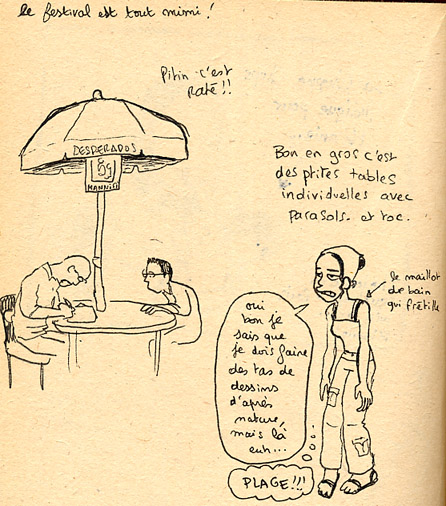 le festival est tout mimi !
Pitin c'est
raté !!
DESPERADOS
Bon en gros c'est
des ptites tables
individuelles avec
parasols. et toc.
le maillot
de bain
qui frétille
oui
bon je
sais que
je dois faire
des tas de
dessins
d'après
nature,
mais là
euh...
PLAGE!!!